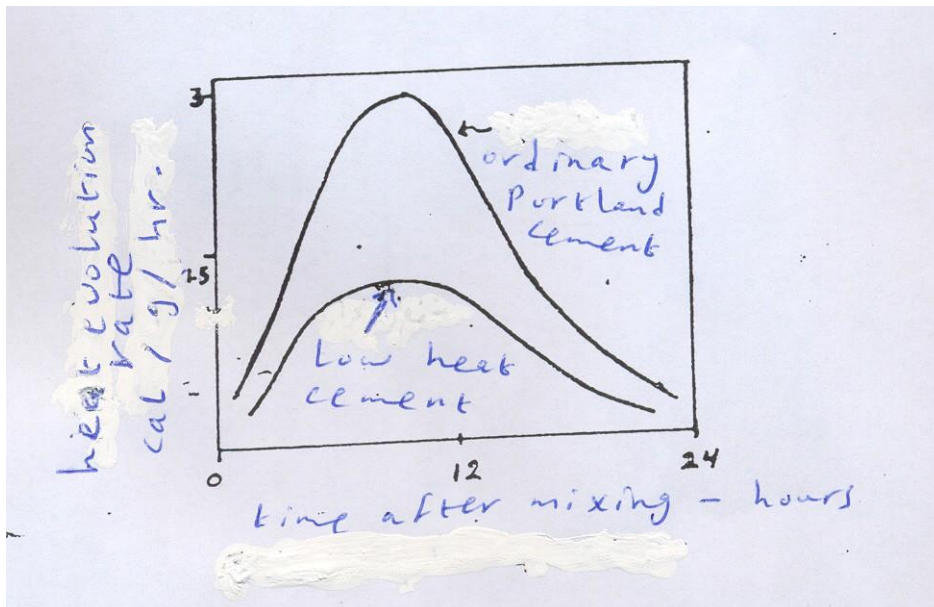 3
1.5
heat evolution
rate
cal / g / hr.
ordinary
Portland
cement
Low heat
cement
0
12
24
time after mixing - hours